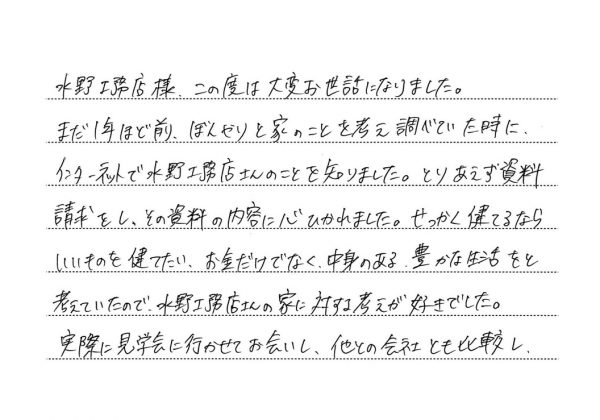 水野工務店様、この度は大変お世話になりました。
まだ1年ほど前、ぼんやりと家のことを考え調べていた時に、
インターネットで水野工務店さんのことを知りました。とりあえず資料
請求をし、その資料の内容に心ひかれました。せっかく健てるなら
いいものを健てたい、お金だけでなく、中身のある、豊かな生活をと
考えていたので、水野工務店さんの家に対する考えが好きでした。
実際に見学会に行かせてお会いし、他との会社とも比較し、